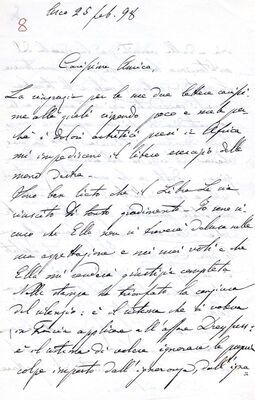 8
Arco 25 feb. 98
Carissimo Amico,
La ringrazio per le sue due lettere
alle quali rispondo poco e male per
chè i dolori artritici presi in Africa
mi impediscono il libero esercizio della
mano destra.
Sono ben lieto che il Libro Le sia
riuscito di tanto gradimento. E sono si
curo che Ella non si troverà delusa nella
sua aspettazione e nei suoi voti e che
Ella mi renderà giustizia completa
Nella stampa ha trionfato la congiura
del silenzio: è il sistema che si voleva
in Francia applicare all'affare Dreyfuss:
è il sistema di volere ignorare le
colpe imposto dall'ignoranza, dall'igna